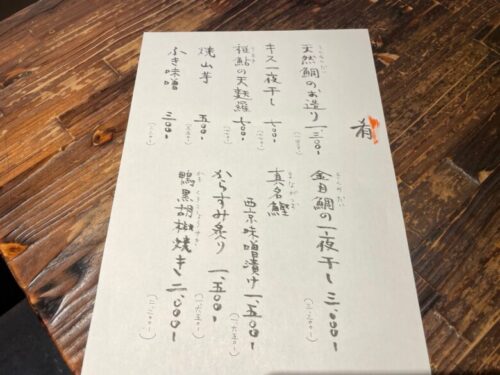 肴
天然鯛のお造り 一、三〇〇-
キス一夜干し 七〇〇-
稚鮎の天麩羅 七〇〇-
焼山芋 五〇〇-
ふき味噌 三〇〇-
金目鯛の一夜干し 三、〇〇〇-
真名鰹
西京味噌漬け 一、五〇〇-
(一、六五〇-)
からすみ炙り 一、五〇〇-
(一、六五〇-)
鴨黒胡椒焼き 二、〇〇〇-
(二、二〇〇-)